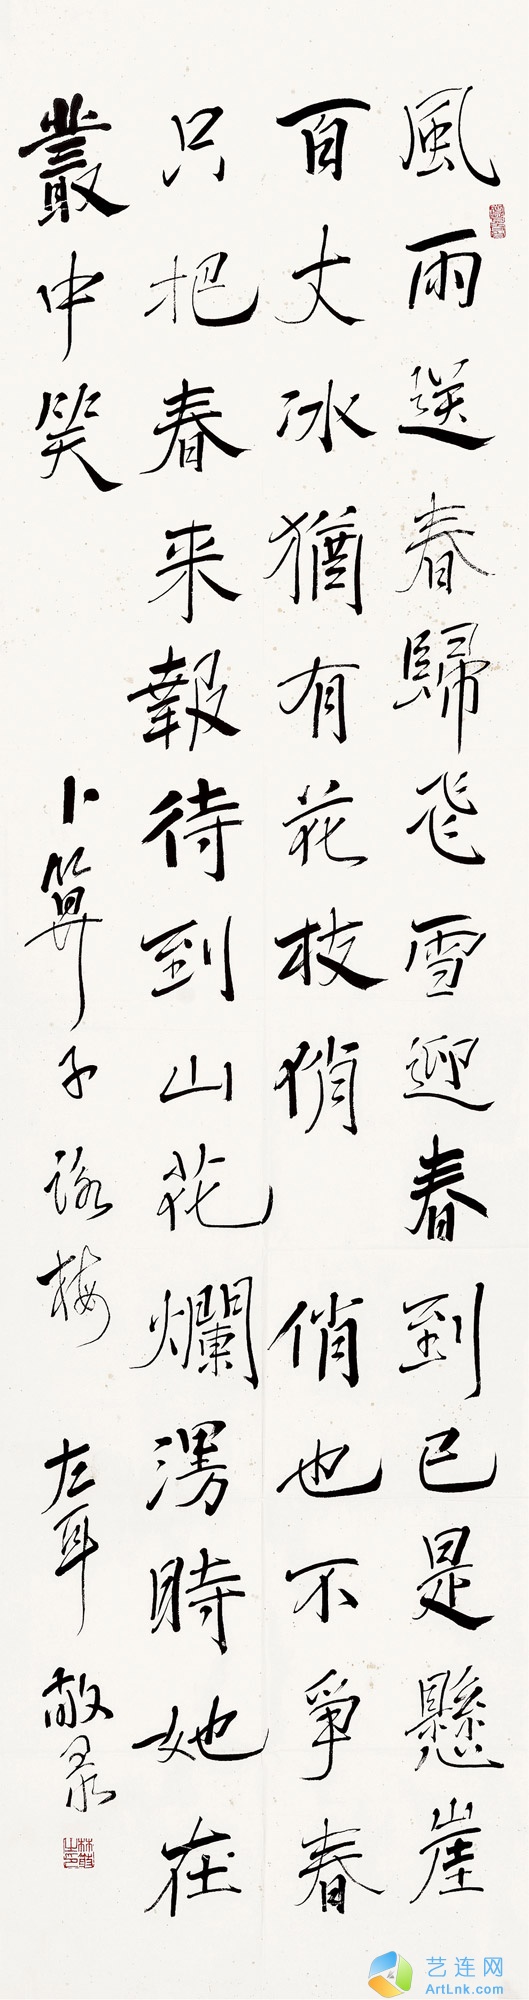 風雨送春歸飛雪迎春到已是懸崖
百丈冰猶有花枝俏俏也不爭春
只把春来報待到山花爛漫時她在
叢中笑
卜算子詠梅 左耳 敬录
艺连网
ArtLnk.com